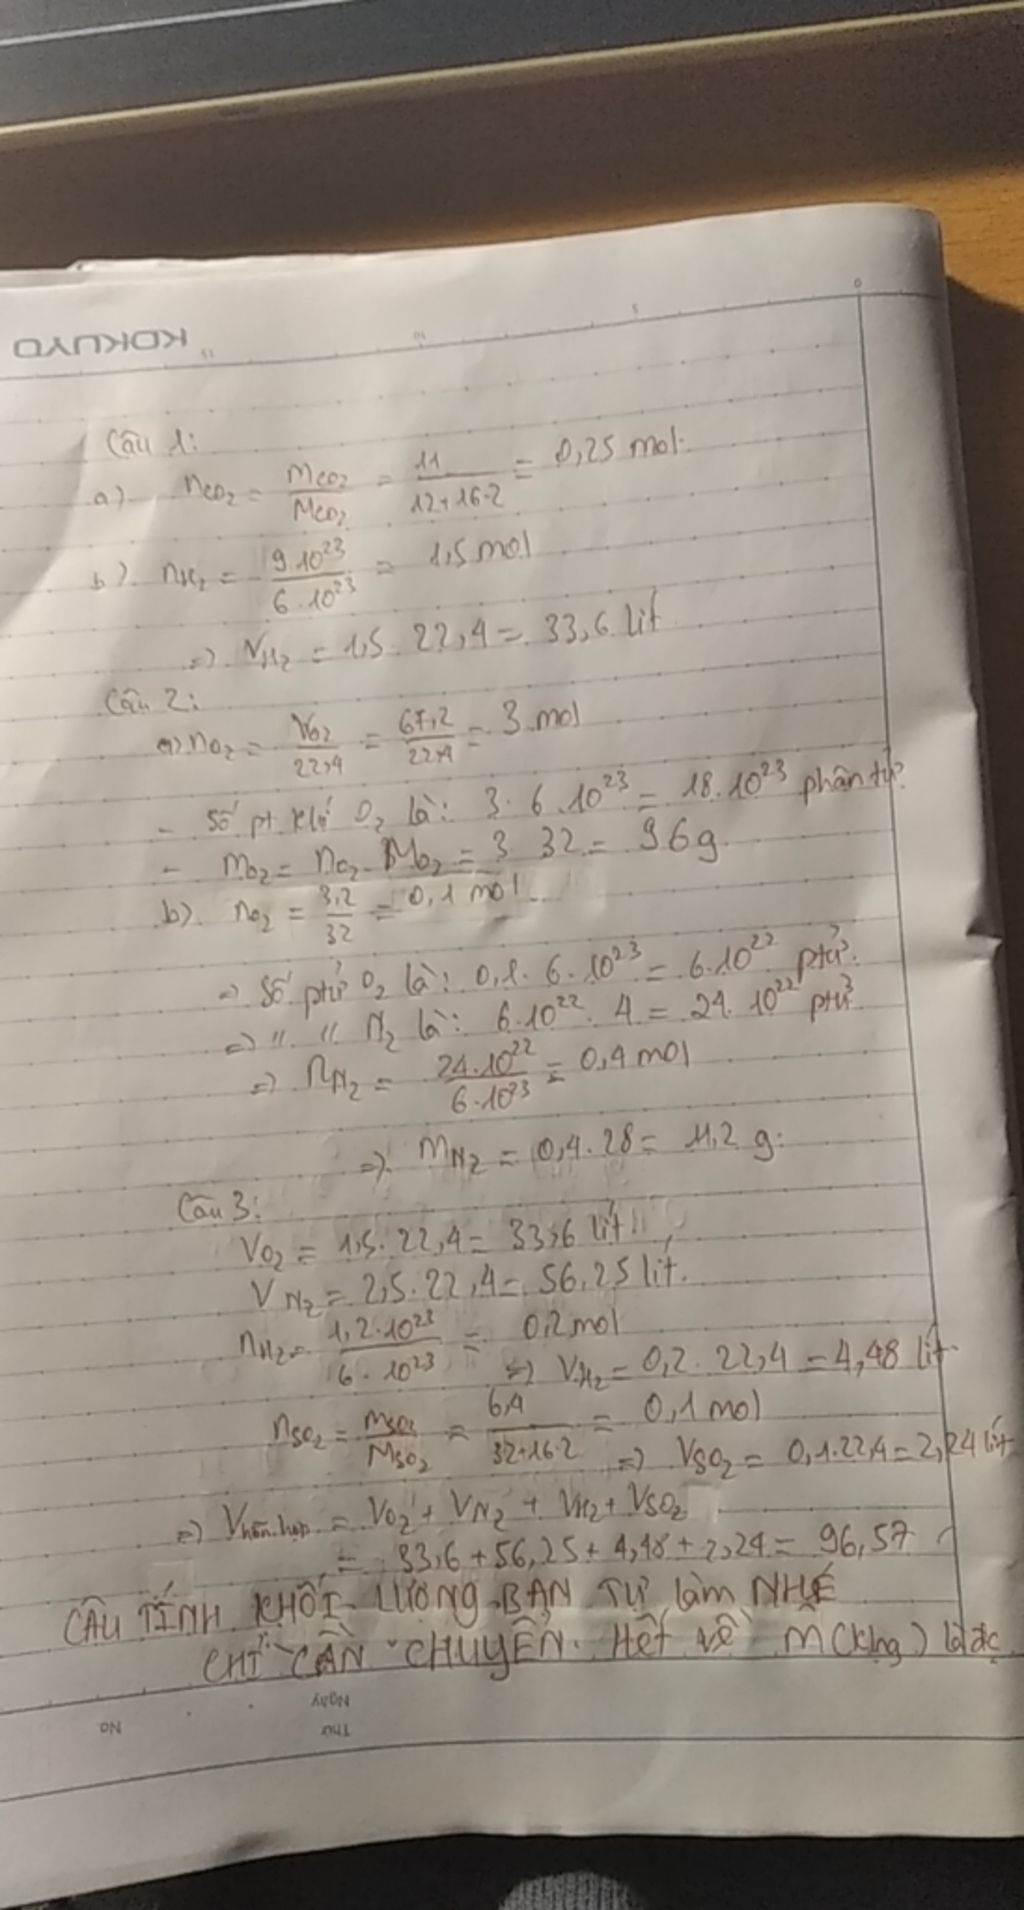 KOKUYO
0 5 10 15
Câu 1:
a) nCO2 = mCO2/MCO2 = 11/(12+16.2) = 0,25 mol.
b) nH2 = 9.10^23/6.10^23 = 1,5 mol
=> VH2 = 1,5. 22,4 = 33,6 lít
Câu 2:
a) nO2 = VO2/22,4 = 67,2/22,4 = 3 mol
- Số pt khí O2 là: 3. 6.10^23 = 18.10^23 phân tử
- mO2 = nO2. MO2 = 3 32 = 96g
b) nO2 = 3,2/32 = 0,1 mol
=> Số ptử O2 là: 0,1. 6.10^23 = 6.10^22 ptử.
=> " " N2 là: 6.10^22. 4 = 24. 10^22 ptử
=> nN2 = 24.10^22/6.10^23 = 0,4 mol
=> mN2 = 0,4. 28 = 11,2 g.
Câu 3:
VO2 = 1,5. 22,4 = 33,6 lít
VN2 = 2,5. 22,4 = 56,25 lít.
nH2 = 1,2.10^23/6.10^23 = 0,2 mol
=> VH2 = 0,2. 22,4 = 4,48 lít.
nSO2 = mSO2/MSO2 = 6,4/(32+16.2) = 0,1 mol
=> VSO2 = 0,1.22,4 = 2,24 lít
=> Vhỗn hợp = VO2 + VN2 + VH2 + VSO2
= 33,6 + 56,25 + 4,48 + 2,24 = 96,57
CÂU TÍNH KHỐI LƯỢNG BẠN TỰ làm NHÉ
CHỈ CẦN CHUYỂN Hết về m (klng) là đc
Ngày
Thứ
No